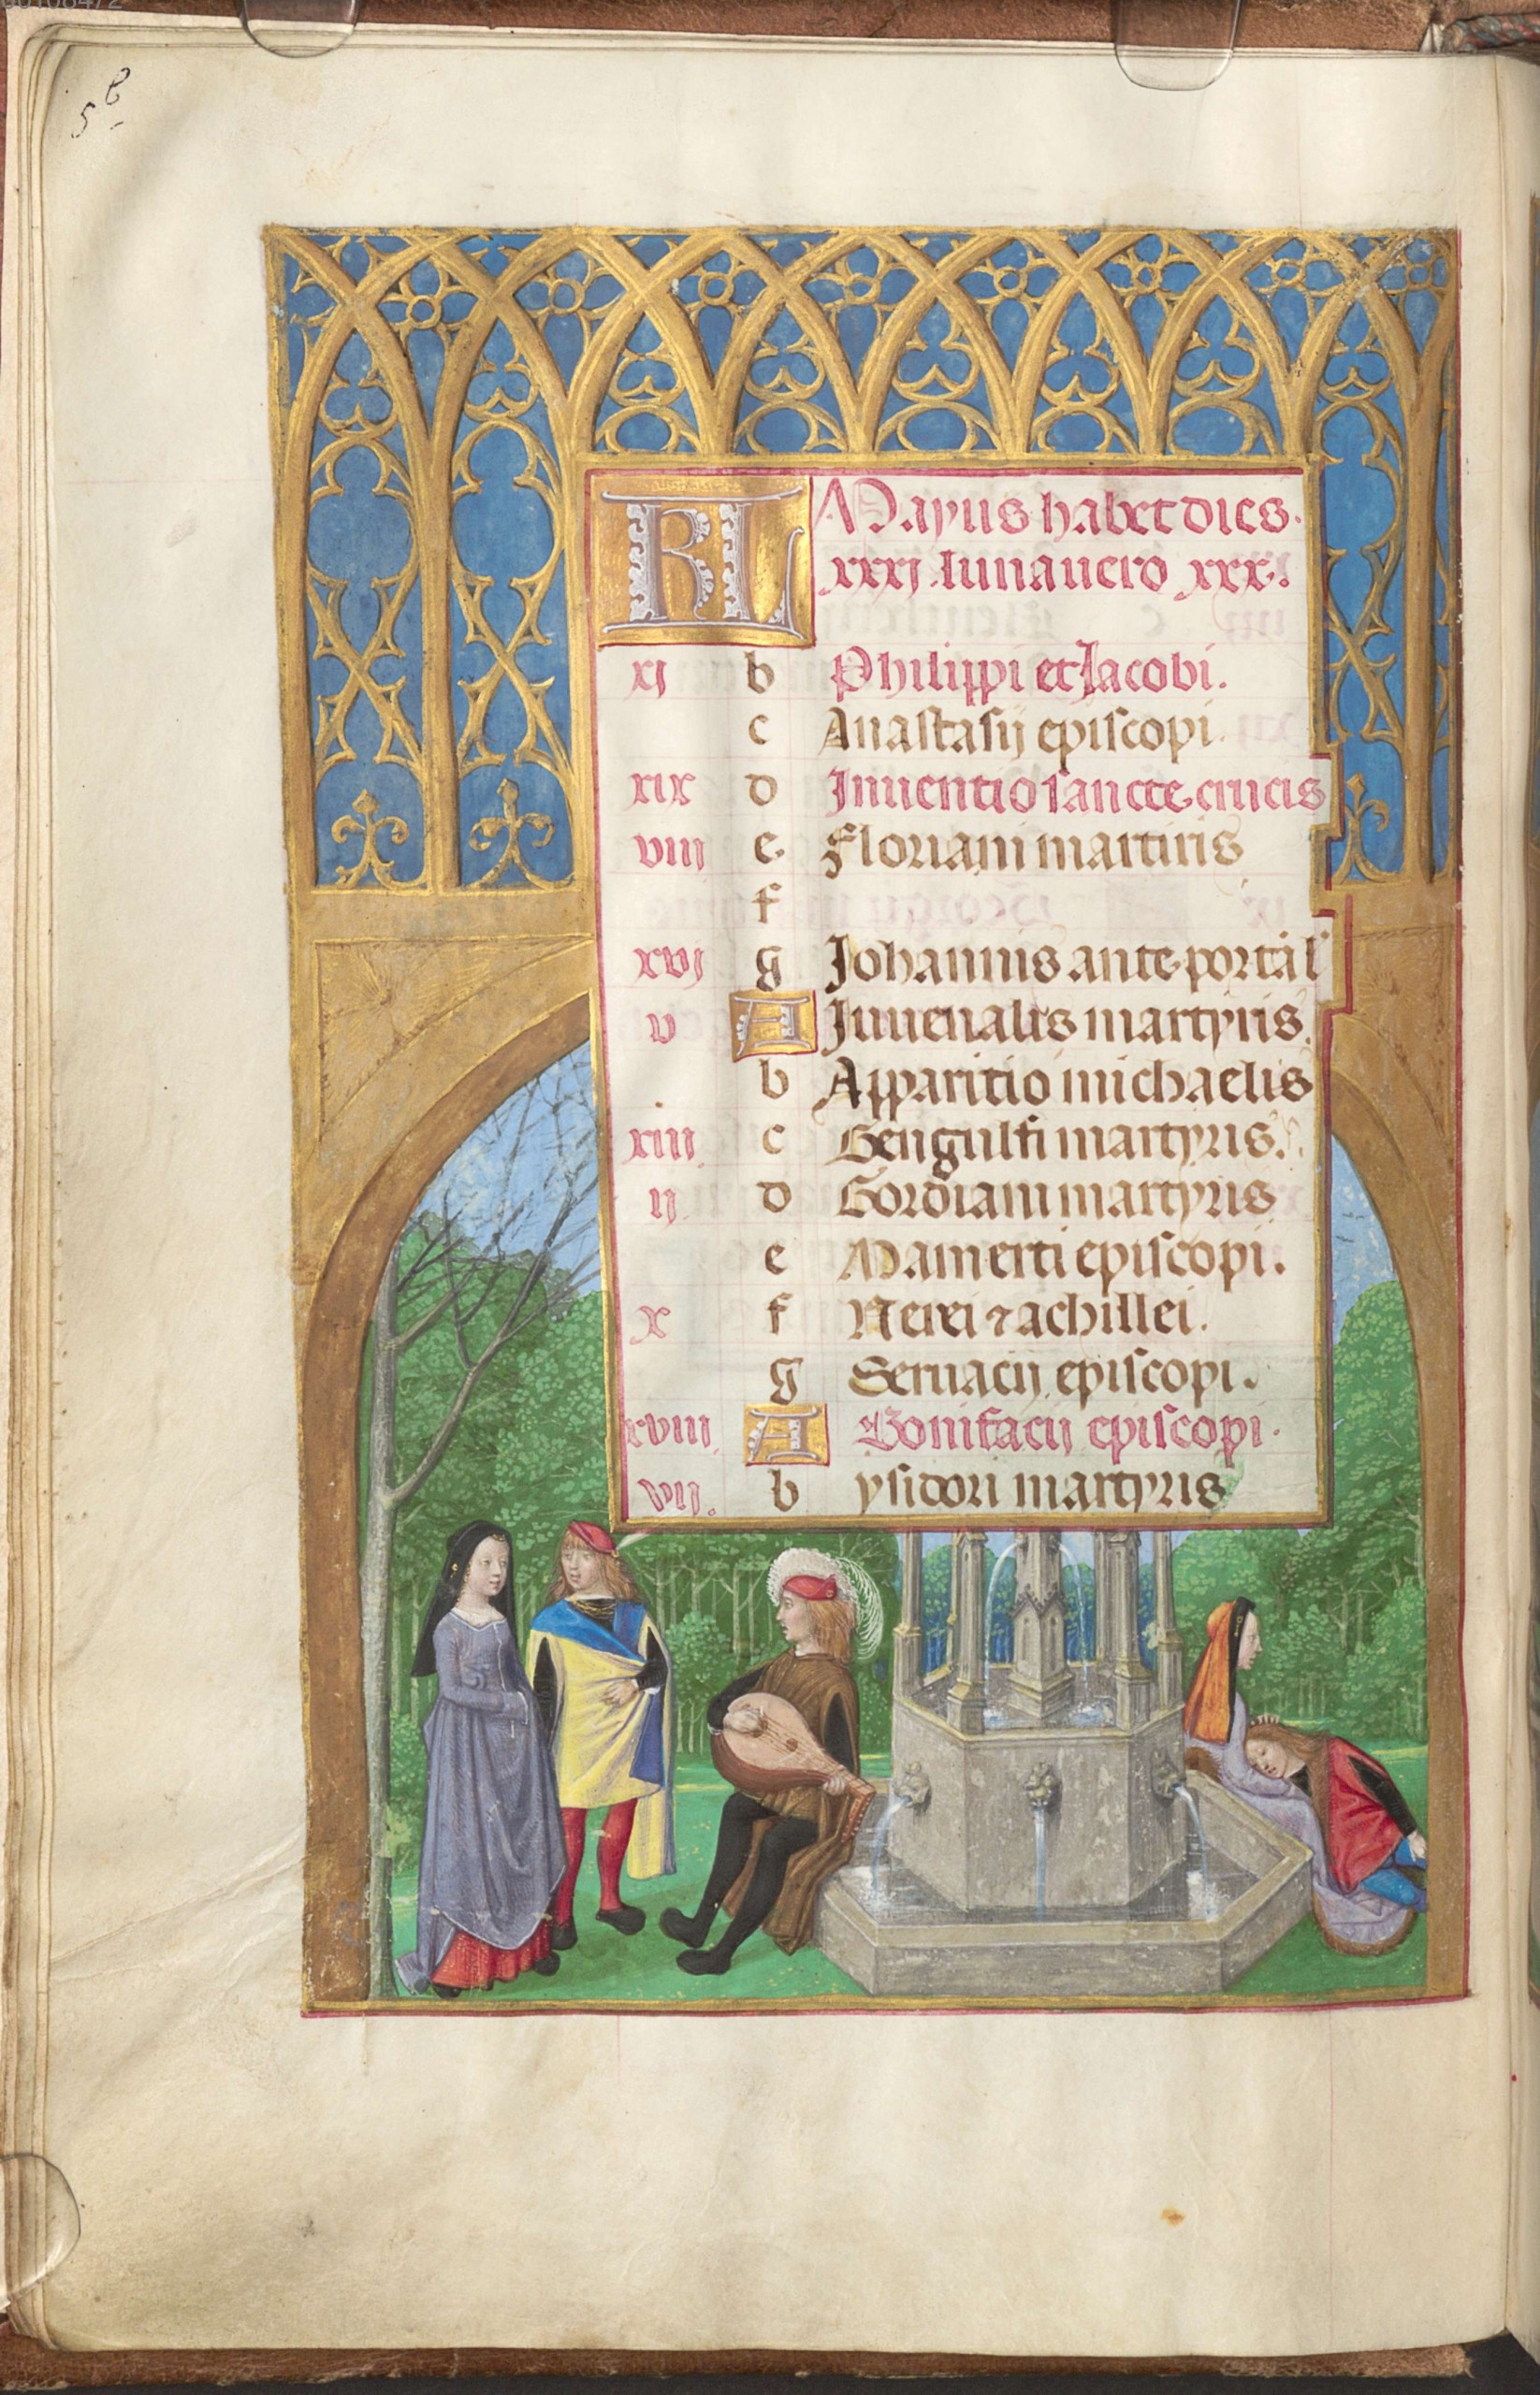 5b
KL Mayus habet dies.
xxxj luna vero xxx.
xj b Philippi et Jacobi.
c Anastasij episcopi.
xix d Inuentio sancte crucis
viii e Floriani martiris
f
xvj g Johannis ante portā l'
v A Iuuenalis martyris.
b Apparitio michaelis
xiii c Gengulfi martyris.
ij d Gordiani martyris
e Mamerti episcopi.
x f Nerei ⁊ achillei.
g Seruacij episcopi.
xviii A Bonifacij episcopi.
vij. b ysidori martyris